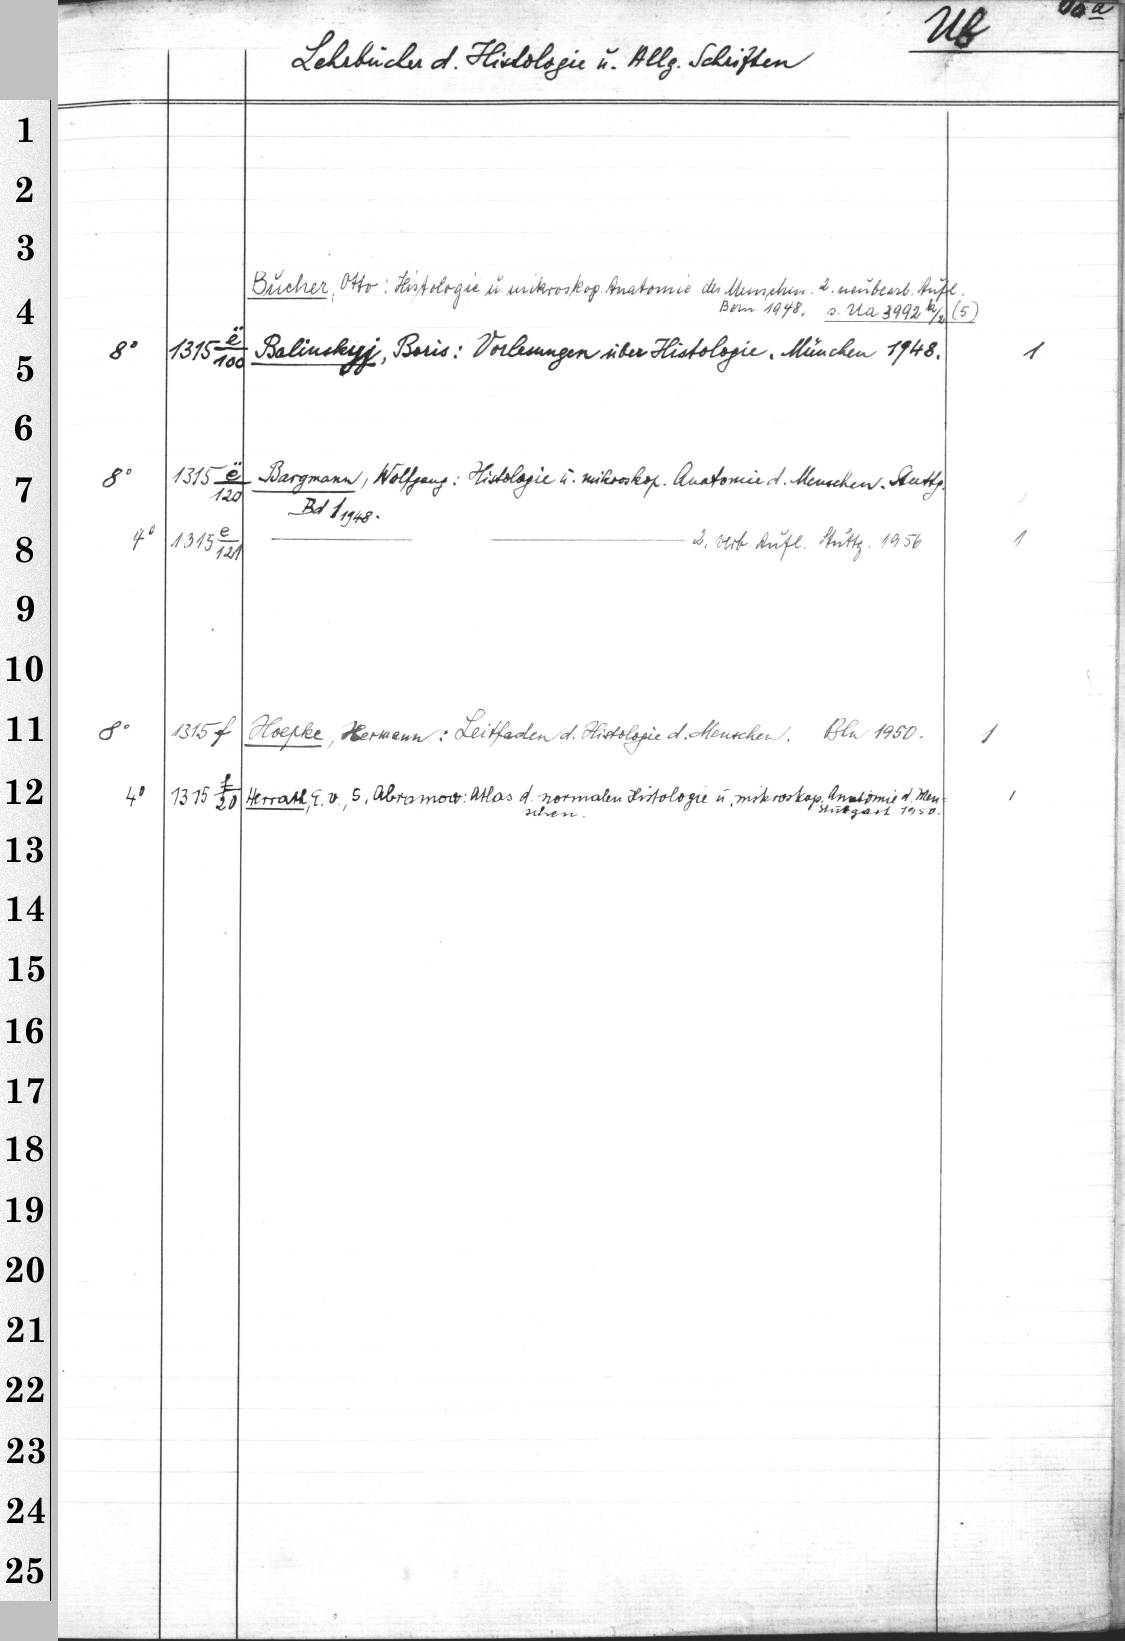 Ub
a
Lehrbücher d. Histologie ü. Allg. Schriften
1
2
3
Bücher, Otto: Histologie ü mikroskop. Anatomie des Menschen. 2. neübearb. Aüfl.
4
Bern 1948. s. Ua 3992 k/2 (5)
8° 1315 ë/100 Balinskyj, Boris: Vorlesungen über Histologie. München 1948. 1
5
6
8° 1315 ë/120 Bargmann, Wolfgang: Histologie ü. mikroskop. Anatomie d. Menschen. Stuttg.
7
Bd 1 1948.
4° 1315 e/121 2. verb. Aüfl. Stüttg. 1956 1
8
9
10
11 8° 1315 f Hoepke, Hermann: Leitfaden d. Histologie d. Menschen. Bln 1950. 1
12 4° 1315 f/20 Herrath, E. v., S. Abramow: Atlas d. normalen Histologie ü. mikroskop. Anatomie d. Men-
schen. Stuttgart 1950. 1
13
14
15
16
17
18
19
20
21
22
23
24
25